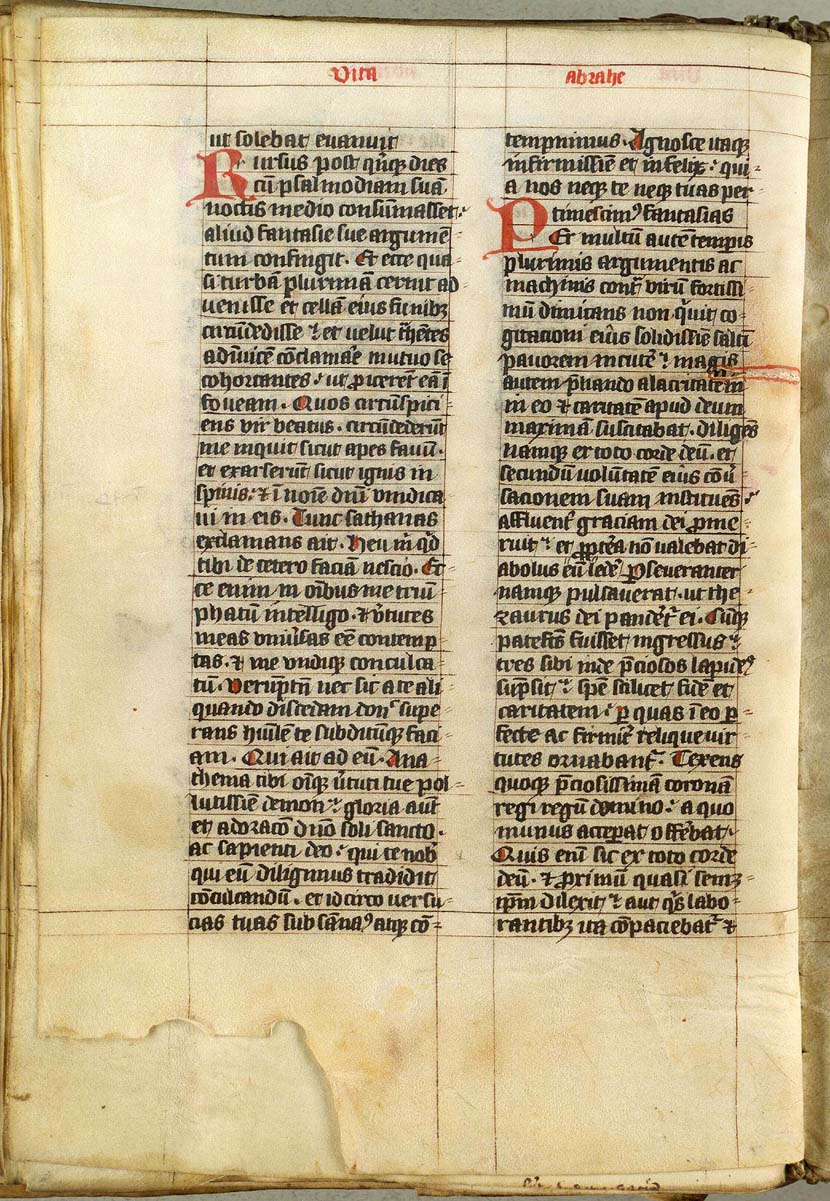 Vita
abrahe
ut solebat euanuit
Rursus post qͥnqꝫ dies
cū psalmodiam suā
noctis medio consūmasset
aliud fantasie sue argumē
tum confingit. Et ecce qua
si turbā plurimā cernit ad
uenisse et cellā eius funibꝫ
circūdedisse et velut
adīuicē cōclamare mutuo se
cohortantes ut ꝓiceret eā ī
foueam. Quos circūspici
ens vir beatus. circūdederūt
me inquit sicut apes fauū.
et exarserūt sicut ignis in
spinis et ī noīe dnī vindica
ui in eis. Tunc sathanas
exclamans ait. Heu m̄ qd̄
tibi de cetero faciā nescio. Ec
ce enim in oībus me trium
phatū intelligo. et v̄tutes
meas vniūsas eē contemp
tas. et me vndiqꝫ conculca
tū. Verūptn̄ nec sic a te ali
quando discedam donͨ supe
rans hūile te subditūqꝫ faci
am. Qui ait ad eū. Ana
thema tibi oīqꝫ v̄tuti tue pol
lutissīe demon gloria aūt
et adoracō dn̄o soli sancto.
ac sapienti deo qui te nob̄
qui eū diligimus tradidit
cōculcandū. et idcirco versu
cias tuas subsānamꝰ atqꝫ cō
tempnimus. Agnosce itaqꝫ
infirmissīe et infelix qui
a nos neqꝫ te neqꝫ tuas per
timescimꝰ fantasias
Per multū autē temporis
plurimis argumentis ac
machinis contͣ virū fortissi
mū dimicans non qͥuit co
gitacioni eius solidissīe saltī
pauorem incutere magis
autem p̄liando alacritatem
in eo et caritatē apud deum
maximā suscitabat. diligēs
namqꝫ ex toto corde deū. et
secundū volūtatē eius cōū
sacionem suam instituens
affluenter graciam dei ꝓme
ruit et ꝓpterea nō valebat di
abolus eū ledere Perseueranter
namqꝫ pulsauerat. ut the
zaurus dei panderetur ei. Cūqꝫ
patefcūs fuisset ingressus
tres sibi inde p̄ciosos lapides
sūpsit spē scilicet fidē et
caritatem ꝑ quas ī eo ꝑ
fecte ac firmiter relique vir
tutes ornabantur. Texens
quoqꝫ p̄ciosissimā coronā
regi regū domino a quo
munus acceperat offerebat.
Quis enī sic ex toto corde
deū. et proximū quasi semet
ipm̄ dilexit aut qͥs labo
rantibꝫ ita cōpaciebatur et